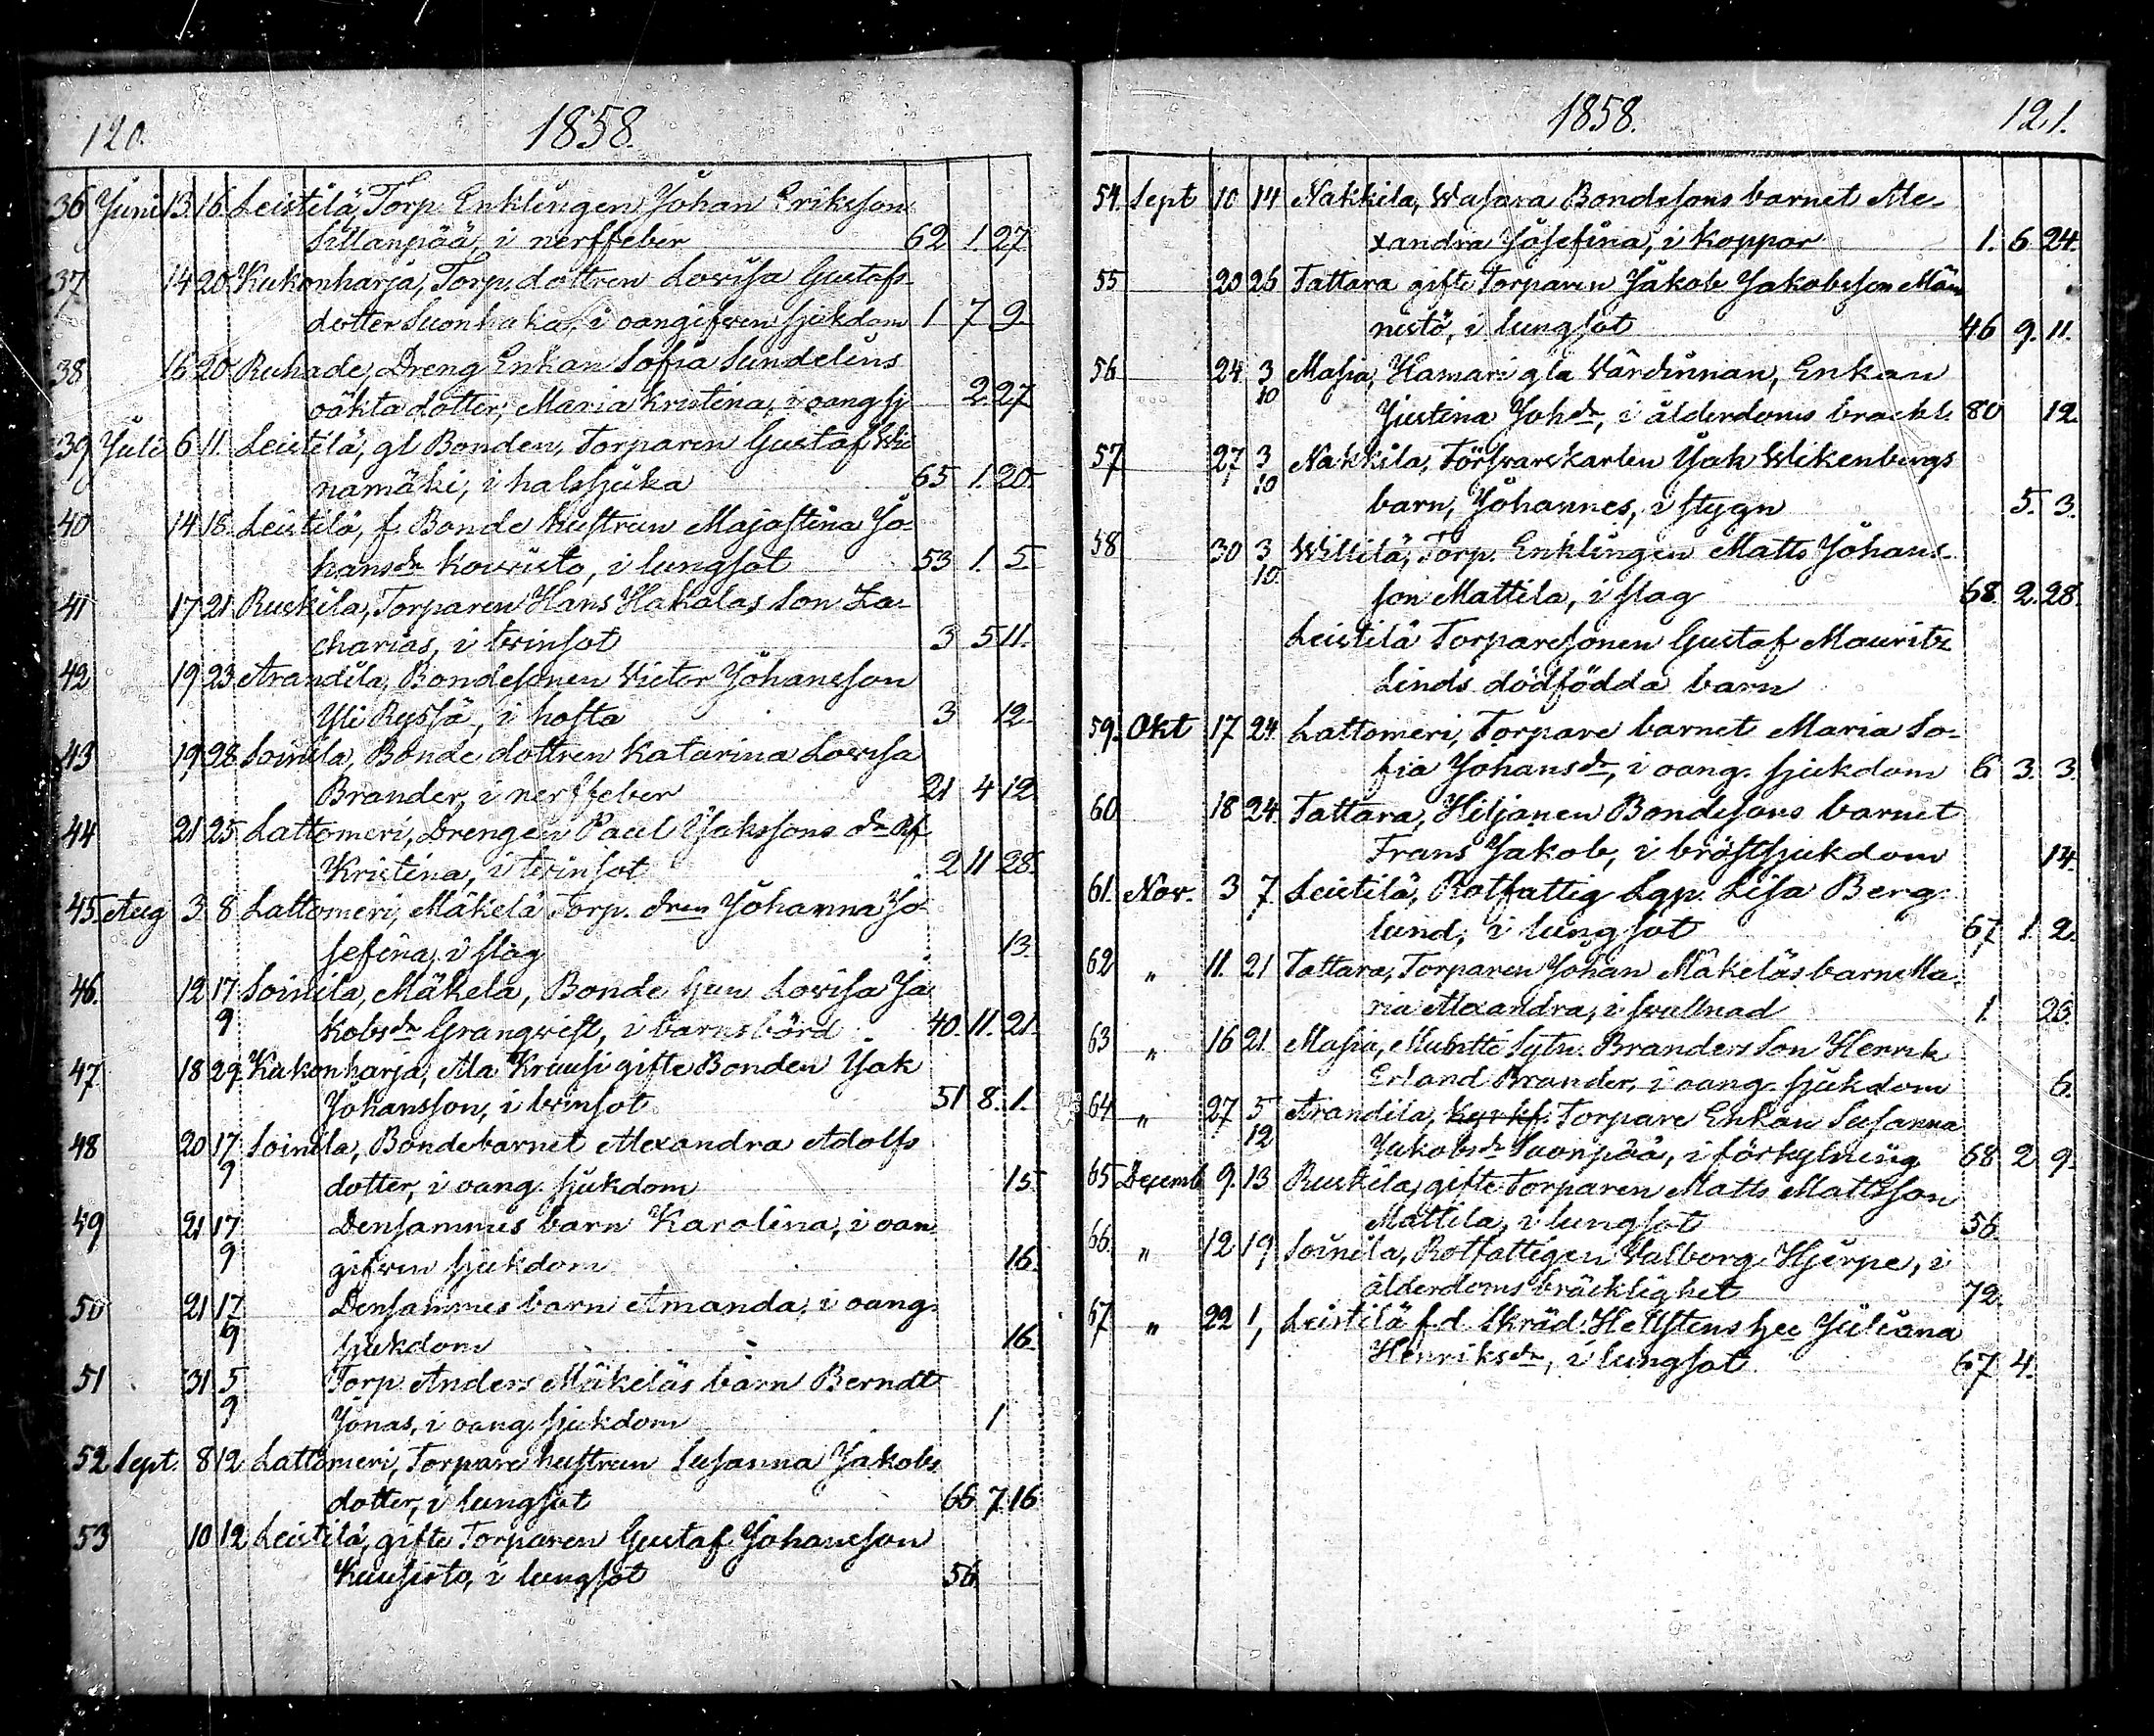 120.
1858.
36 Juni 13 16. Leistilä, Torp. Enklingen Johan Eriksson
Sillanpää, i nerffeber 62 1. 27.
37 14 20 Kukonharja, Torp. dottren Lovisa Gustafs
dotter Suonhaka, i oangifven sjukdom 1 7 9.
38 16 20 Ruhade, Dreng Enkan Sofia Sundelins
oäkta dotter, Maria Kristina, i oang sj 2. 27
39 Juli 6 11. Leistilä, gl Bonden, Torparen Gustaf Wii
namäki, i halssjuka 65 1. 20.
40 14 18. Leistilä, f. Bonde hustrun Majastina Jo-
hansdr Kouvisto, i lungsot 53 1. 5.
41 17 21 Ruskila, Torparen Hans Hakalas Son Za-
charias, i tvinsot 3 5 11.
42 19 23 Arandila, Bondesonen Victor Johansson
Yli Ryssä, i hosta 3 12.
43 19 28 Soinila, Bonde dottren Katarina Lovisa
Brander, i nerffeber 21 4 12
44 21 25. Lattomeri, Drengen Paul Isakssons dr
Kristina, i tvinsot 2 11 28.
45. Aug 3 8 Lattomeri, Mäkelä Torp. dren Johanna Jo-
sefina, i slag 13.
46. 12 17 Soinila, Mäkelä, Bonde hun Lovisa Ja
9 kobsdr Granqvist, i barnsbörd 40. 11. 21.
47 18 29. Kukonharja, Ala Krausi gifte Bonden Isak
Johansson, i tvinsot 51 8. 1.
48 20 17 Soinila, Bondebarnet Alexandra Adolfs
9 dotter, i oang. sjukdom 15.
49 21 17 Densammes barn Karolina, i oan
9 gifven sjukdom 16.
50 21 17 Densammes barn Amanda, i oang
9 sjukdom 16.
51 31 5 Torp Anders Mäkeläs barn Berndt
9 Jonas, i oang. sjukdom 1
52 Sept. 8 12 Lattomeri, Torpare hustrun Susanna Jakobs
dotter, i lungsot 66 7. 16
53 10 12 Leistilä, gifte Torparen Gustaf Johansson
Kuusisto, i lungsot 56.
1858. 121.
54. Sept 10 14 Nakkila, Wasara Bondesons barnet Ale-
xandra Josefina, i koppor 1. 6 24.
55 20 26 Tattara gifte Torparen Jakob Jakobsson Män
nistö, i lungsot 46 9. 11.
56 24 3 Masia, Hamari gla Värdinnan, Enkan
10 Justina Johdr, i ålderdoms brackl. 80 12.
57 27 3 Nakkila, Försvarskarlen Isak Wikenbergs
10 barn, Johannes, i stygn 5. 3.
58 30 3 Willilä, Torp. Enklingen Matts Johans-
10. son Mattila, i slag 68. 2. 28.
Leistilä Torparesonen Gustaf Mauritz
Linds dödfödda barn
59. Okt 17 24. Lattomeri, Torpare barnet Maria So-
fia Johansdr, i oang. sjukdom 6 3. 3.
60 18 24. Tattara, Hiljanen Bondesons barnet
Frans Jakob, i bröstsjukdom 14.
61. Nov. 3 7 Leistilä, Rotfattig Lgp. Lisa Berg-
lund, i lungsot 67 1. 2.
62 " 11. 21 Tattara, Torparen Johan Mäkeläs barn Ma-
ria Alexandra, i svullnad 1. 26.
63 " 16 21. Masia, Sytn. Branders Son Henrik
Erland Brander, i oang. sjukdom 6.
64 " 27 5 Arandila, Torpare Enkan Susanna
12 Jakobsdr Suonpää, i förkylning 68 2 9.
65 Decemb 9. 13 Ruskila, gifte Torparen Matts Mattsson
Mattila, i lungsot 56
66. " 12 19 Soinila, Rotfattigen Valborg Hjerpe, i
ålderdoms bräcklighet 72.
67 " 22 1, Leistilä f.d Skräd. Hellstens hu Juliana
Henriksdr, i lungsot 67 4.